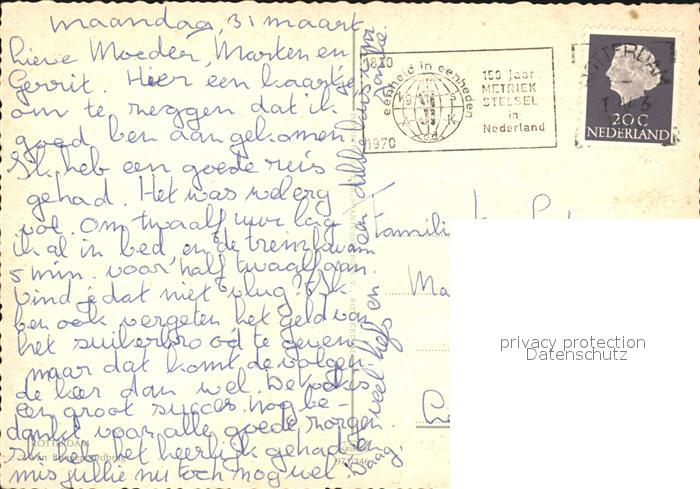 maandag, 31 maart
Lieve Moeder, Marten en
Gerrit. Hier een kaartje
om te zeggen dat ik
goed ben aangekomen.
Ik heb een goede reis
gehad. Het was wel erg
vol. Om twaalf uur lag
ik al in bed en de trein kwam
5 min. voor half twaalf aan.
Vind je dat niet vlug? Ik
ben ook vergeten het geld van
het suikerbrood te geven
maar dat komt de volgen
de keer dan wel. De was
een groot succes nog be-
dankt voor alle goede zorgen
Ik heb het heerlijk gehad en
mis jullie nu toch nog wel!
veel liefs en
1820
1970
eenheid in eenheden
150 jaar
METRIEK
STELSEL
in
Nederland
ROTTERDAM
20C
NEDERLAND
Famili
Ma
privacy protection
Datenschutz
ROTTERDAM